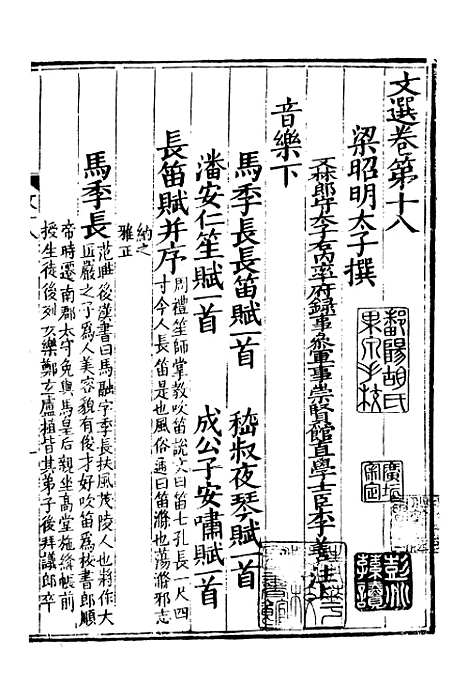 文選卷第十八
梁昭明太子撰
文林郎守太子右內率府録事參軍事崇賢館直學士臣李善注
音樂下
馬季長長笛賦一首
嵇叔夜琴賦一首
潘安仁笙賦一首
成公子安嘯賦一首
長笛賦并序
周禮笙師掌教吹笛說文曰笛七孔長一尺四
寸今人長笛是也風俗通曰笛滌也蕩滌邪志
納之
雅正
馬季長
范曄後漢書曰馬融字季長扶風茂陵人也將作大
匠嚴之子爲人美容貌有俊才好吹笛爲校書郎順
帝時遷南郡太守免與馬皇后親坐高堂施絳帳前
授生徒後列女樂鄭玄盧植皆其弟子後拜議郎卒
鄱陽胡氏